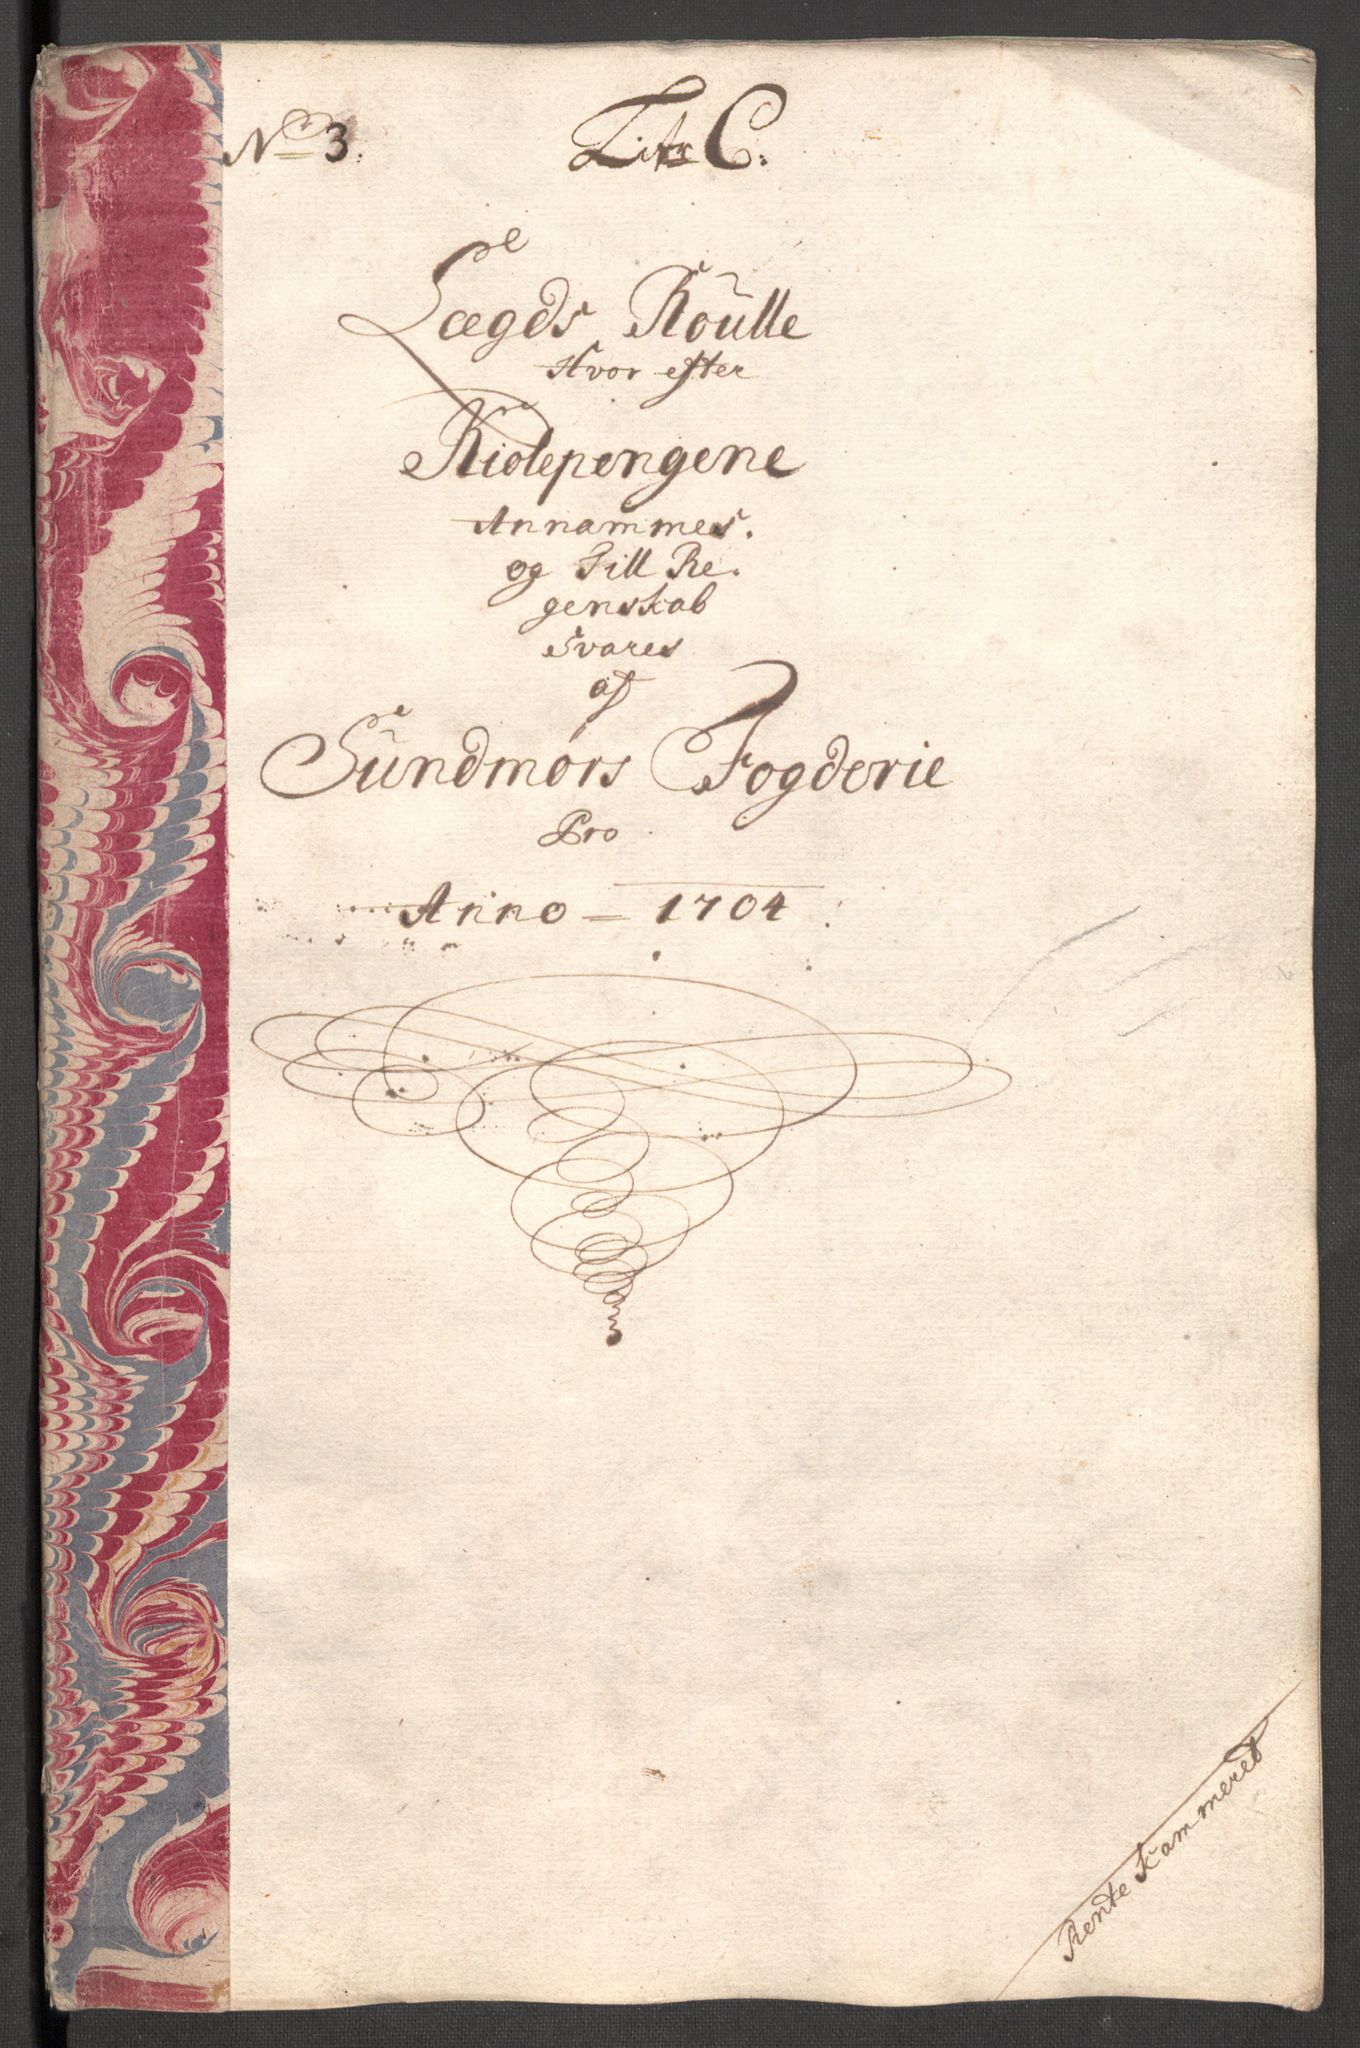 No 3. Litr C.
Lægds Roulle
Hvor efter
Kiolepengene
Annammes.
og Till Re.
genskab
Svares
af
Sundmørs Fogderie
Pro
Anno - 1704
Rente Kammeret